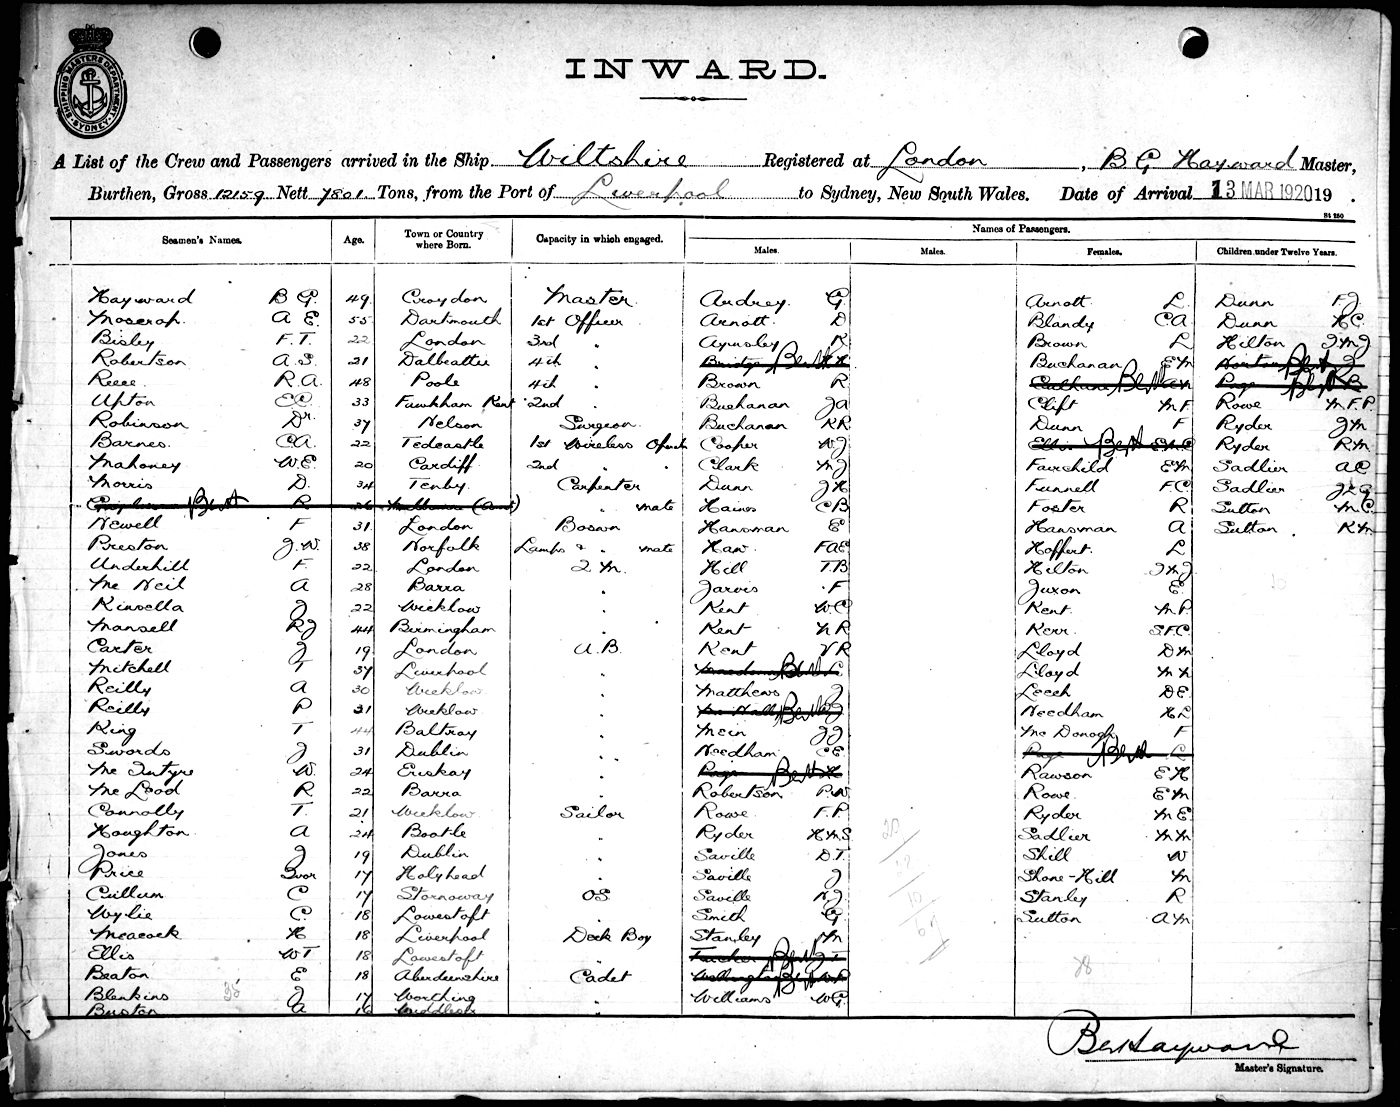 SHIPPING MASTERS DEPARTMENT
SYDNEY
INWARD.
A List of the Crew and Passengers arrived in the Ship Wiltshire Registered at London, B G Hayward Master,
Burthen, Gross 12159 Nett 7801 Tons, from the Port of Liverpool to Sydney, New South Wales. Date of Arrival 13 MAR 1920 19 .
St 250
Seamen's Names. Age. Town or Country where Born. Capacity in which engaged. Names of Passengers.
Males. Males. Females. Children under Twelve Years.
Hayward B G. 49 Croydon Master Audrey G. Arnott L. Dunn F J
Moscrop A E 55 Dartmouth 1st Officer Arnott D Blandy C A Dunn H C
Bisley F. T. 22 London 3rd " Aynsley R Brown L Hilton J M J
Robertson A. S. 21 Dalbeattie 4th " Buchanan E M
Reece R. A. 48 Poole 4th " Brown R Page
Upton E C. 33 Fawkham Kent 2nd " Buchanan J A Clift M F. Rowe M F. P.
Robinson Dr. 37 Nelson Surgeon Buchanan R R Dunn F Ryder J M
Barnes C A. 22 Tedcastle 1st Wireless Cooper W J Ryder R M
Mahoney W. E. 20 Cardiff 2nd " " Clark M J Fairchild E M Sadlier A C
Morris D. 34 Tenby Carpenter Dunn J H Funnell F. C. Sadlier
R 26 " mate Haines C B Foster R Sutton M C.
Newell F 31 London Boswn Hansman E Hansman A Sutton R M
Preston J. W. 38 Norfolk Lamps & " mate Haw F A E Hoffert L
Underhill F. 22 London 2 M. Hill T. B Hilton J M J
Mc Neil A 28 Barra " Jarvis F Juxon E
Kinsella J 22 Wicklow " Kent W. C Kent M P.
Mansell R J 44 Birmingham " Kent N R Kerr S. F. C.
Carter J 19 London A. B. Kent V R Lloyd D M
Mitchell T 37 Liverpool " Lloyd M N
Reilly A 30 Wicklow " Matthews J Leech D E
Reilly P 31 Wicklow " Needham H L
King T 44 Baltray " Mein J J Mc Donogh F
Swords J 31 Dublin " Needham C E Page L
Mc Intyre W. 24 Eriskay " Page H Rawson E H
Mc Leod R 22 Barra " Robertson P. W Rowe E M
Connolly T. 21 Wicklow Sailor Rowe F. P. Ryder M E
Houghton A 24 Bootle " Ryder H M S Sadlier M M
Jones J 19 Dublin " Saville D. T. Skill W
Price Ivor 17 Holyhead " Saville J Shone-Hill M
Cullum C 17 Stornoway O S Saville N J Stanley R
Wylie C 18 Lowestoft " Smith G Sutton A M
Meacock H 18 Liverpool Deck Boy Stanley M
Ellis W T 18 Lowestoft "
Beaton E 18 Aberdeenshire Cadet
Blenkins J 17 Worthing " Williams W G
Buston A 16 Middlesex "
B G Hayward
Master's Signature.